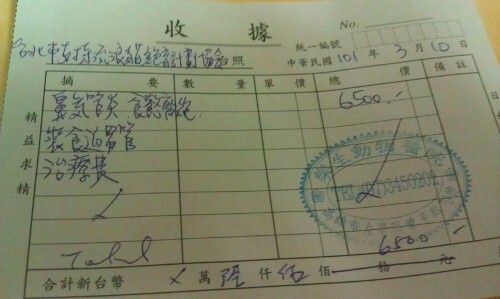 收據
No.
統一編號
台北市支持流浪貓絕育計劃協會 台照
中華民國 101 年 3 月 10 日
摘要 數量 單價 總價 備註
鼻氣管炎、食慾廢絕 6500.-
裝食道胃管
治療費
精益求精
Total 6500.-
合計新台幣 萬 陸 仟 伍 佰 拾 元
動物醫院